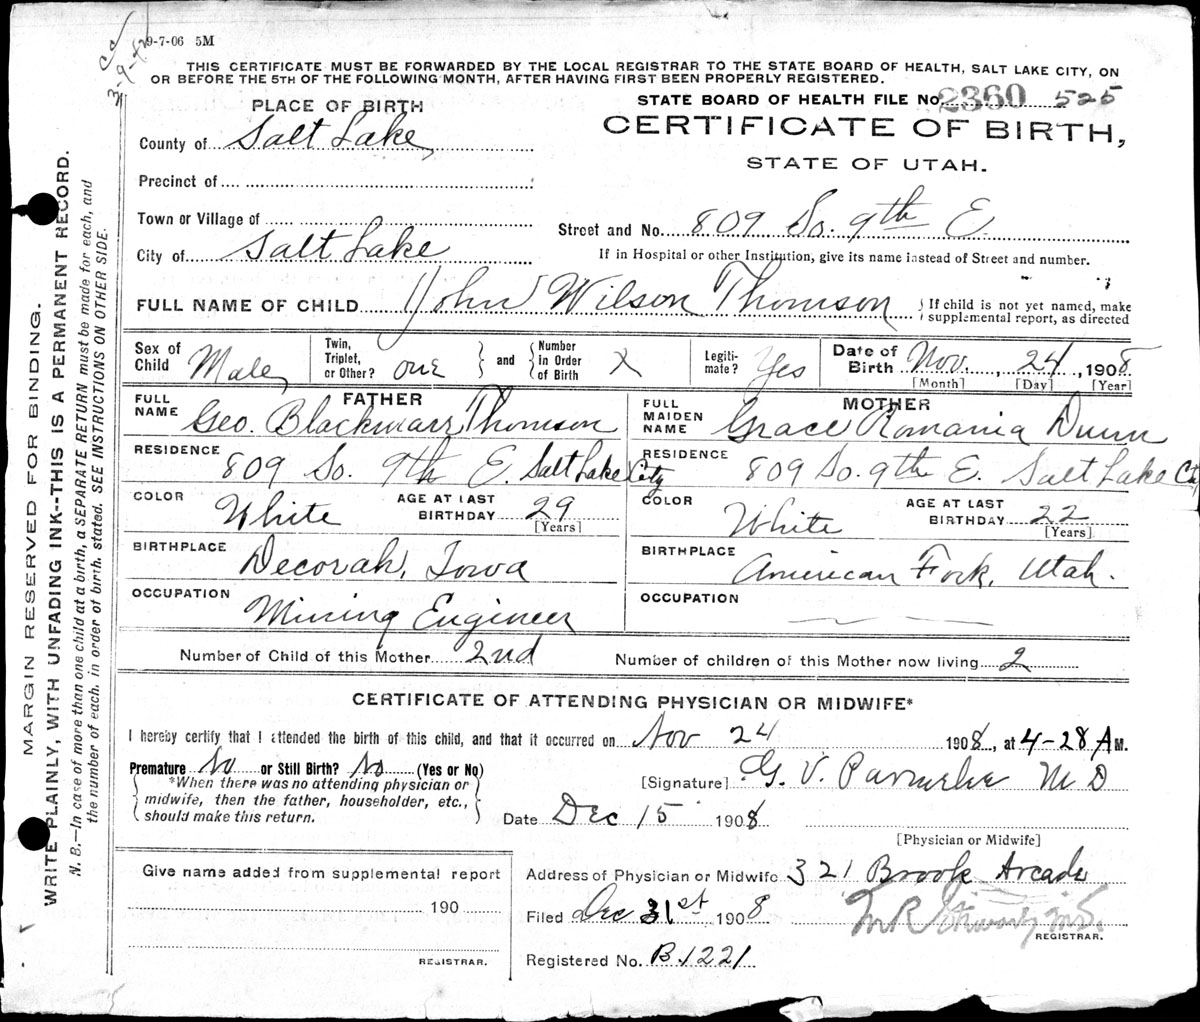 9-7-06 5M
3-9-42
THIS CERTIFICATE MUST BE FORWARDED BY THE LOCAL REGISTRAR TO THE STATE BOARD OF HEALTH, SALT LAKE CITY, ON
OR BEFORE THE 5TH OF THE FOLLOWING MONTH, AFTER HAVING FIRST BEEN PROPERLY REGISTERED.
STATE BOARD OF HEALTH FILE No. 2360 525
CERTIFICATE OF BIRTH,
STATE OF UTAH.
PLACE OF BIRTH
County of Salt Lake
Precinct of
Town or Village of
City of Salt Lake
Street and No. 809 So. 9th E
If in Hospital or other Institution, give its name instead of Street and number.
FULL NAME OF CHILD John Wilson Thomson { If child is not yet named, make
supplemental report, as directed
Sex of Child Male Twin, Triplet, or Other? one } and { Number in Order of Birth X Legitimate? Yes Date of Birth Nov. 24, 1908
[Month] [Day] [Year]
FATHER
FULL NAME Geo. Blackmarr Thomson
RESIDENCE 809 So. 9th E. Salt Lake City
COLOR White AGE AT LAST BIRTHDAY 29
[Years]
BIRTHPLACE Decorah, Iowa
OCCUPATION Mining Engineer
MOTHER
FULL MAIDEN NAME Grace Romania Dunn
RESIDENCE 809 So. 9th E. Salt Lake City
COLOR White AGE AT LAST BIRTHDAY 22
[Years]
BIRTHPLACE American Fork, Utah.
OCCUPATION
Number of Child of this Mother 2nd Number of children of this Mother now living 2
CERTIFICATE OF ATTENDING PHYSICIAN OR MIDWIFE*
I hereby certify that I attended the birth of this child, and that it occurred on Nov 24 1908, at 4-28 A M.
Premature No or Still Birth? No (Yes or No)
*When there was no attending physician or
midwife, then the father, householder, etc.,
should make this return.
[Signature] G. V. M D
Date Dec 15 1908
[Physician or Midwife]
Give name added from supplemental report
190
REGISTRAR.
Address of Physician or Midwife 321 Brook Arcade
Filed Dec 31st 1908
REGISTRAR.
Registered No. B. 1221
MARGIN RESERVED FOR BINDING.
WRITE PLAINLY, WITH UNFADING INK--THIS IS A PERMANENT RECORD.
N. B.—In case of more than one child at a birth, a SEPARATE RETURN must be made for each, and
the number of each, in order of birth, stated. SEE INSTRUCTIONS ON OTHER SIDE.